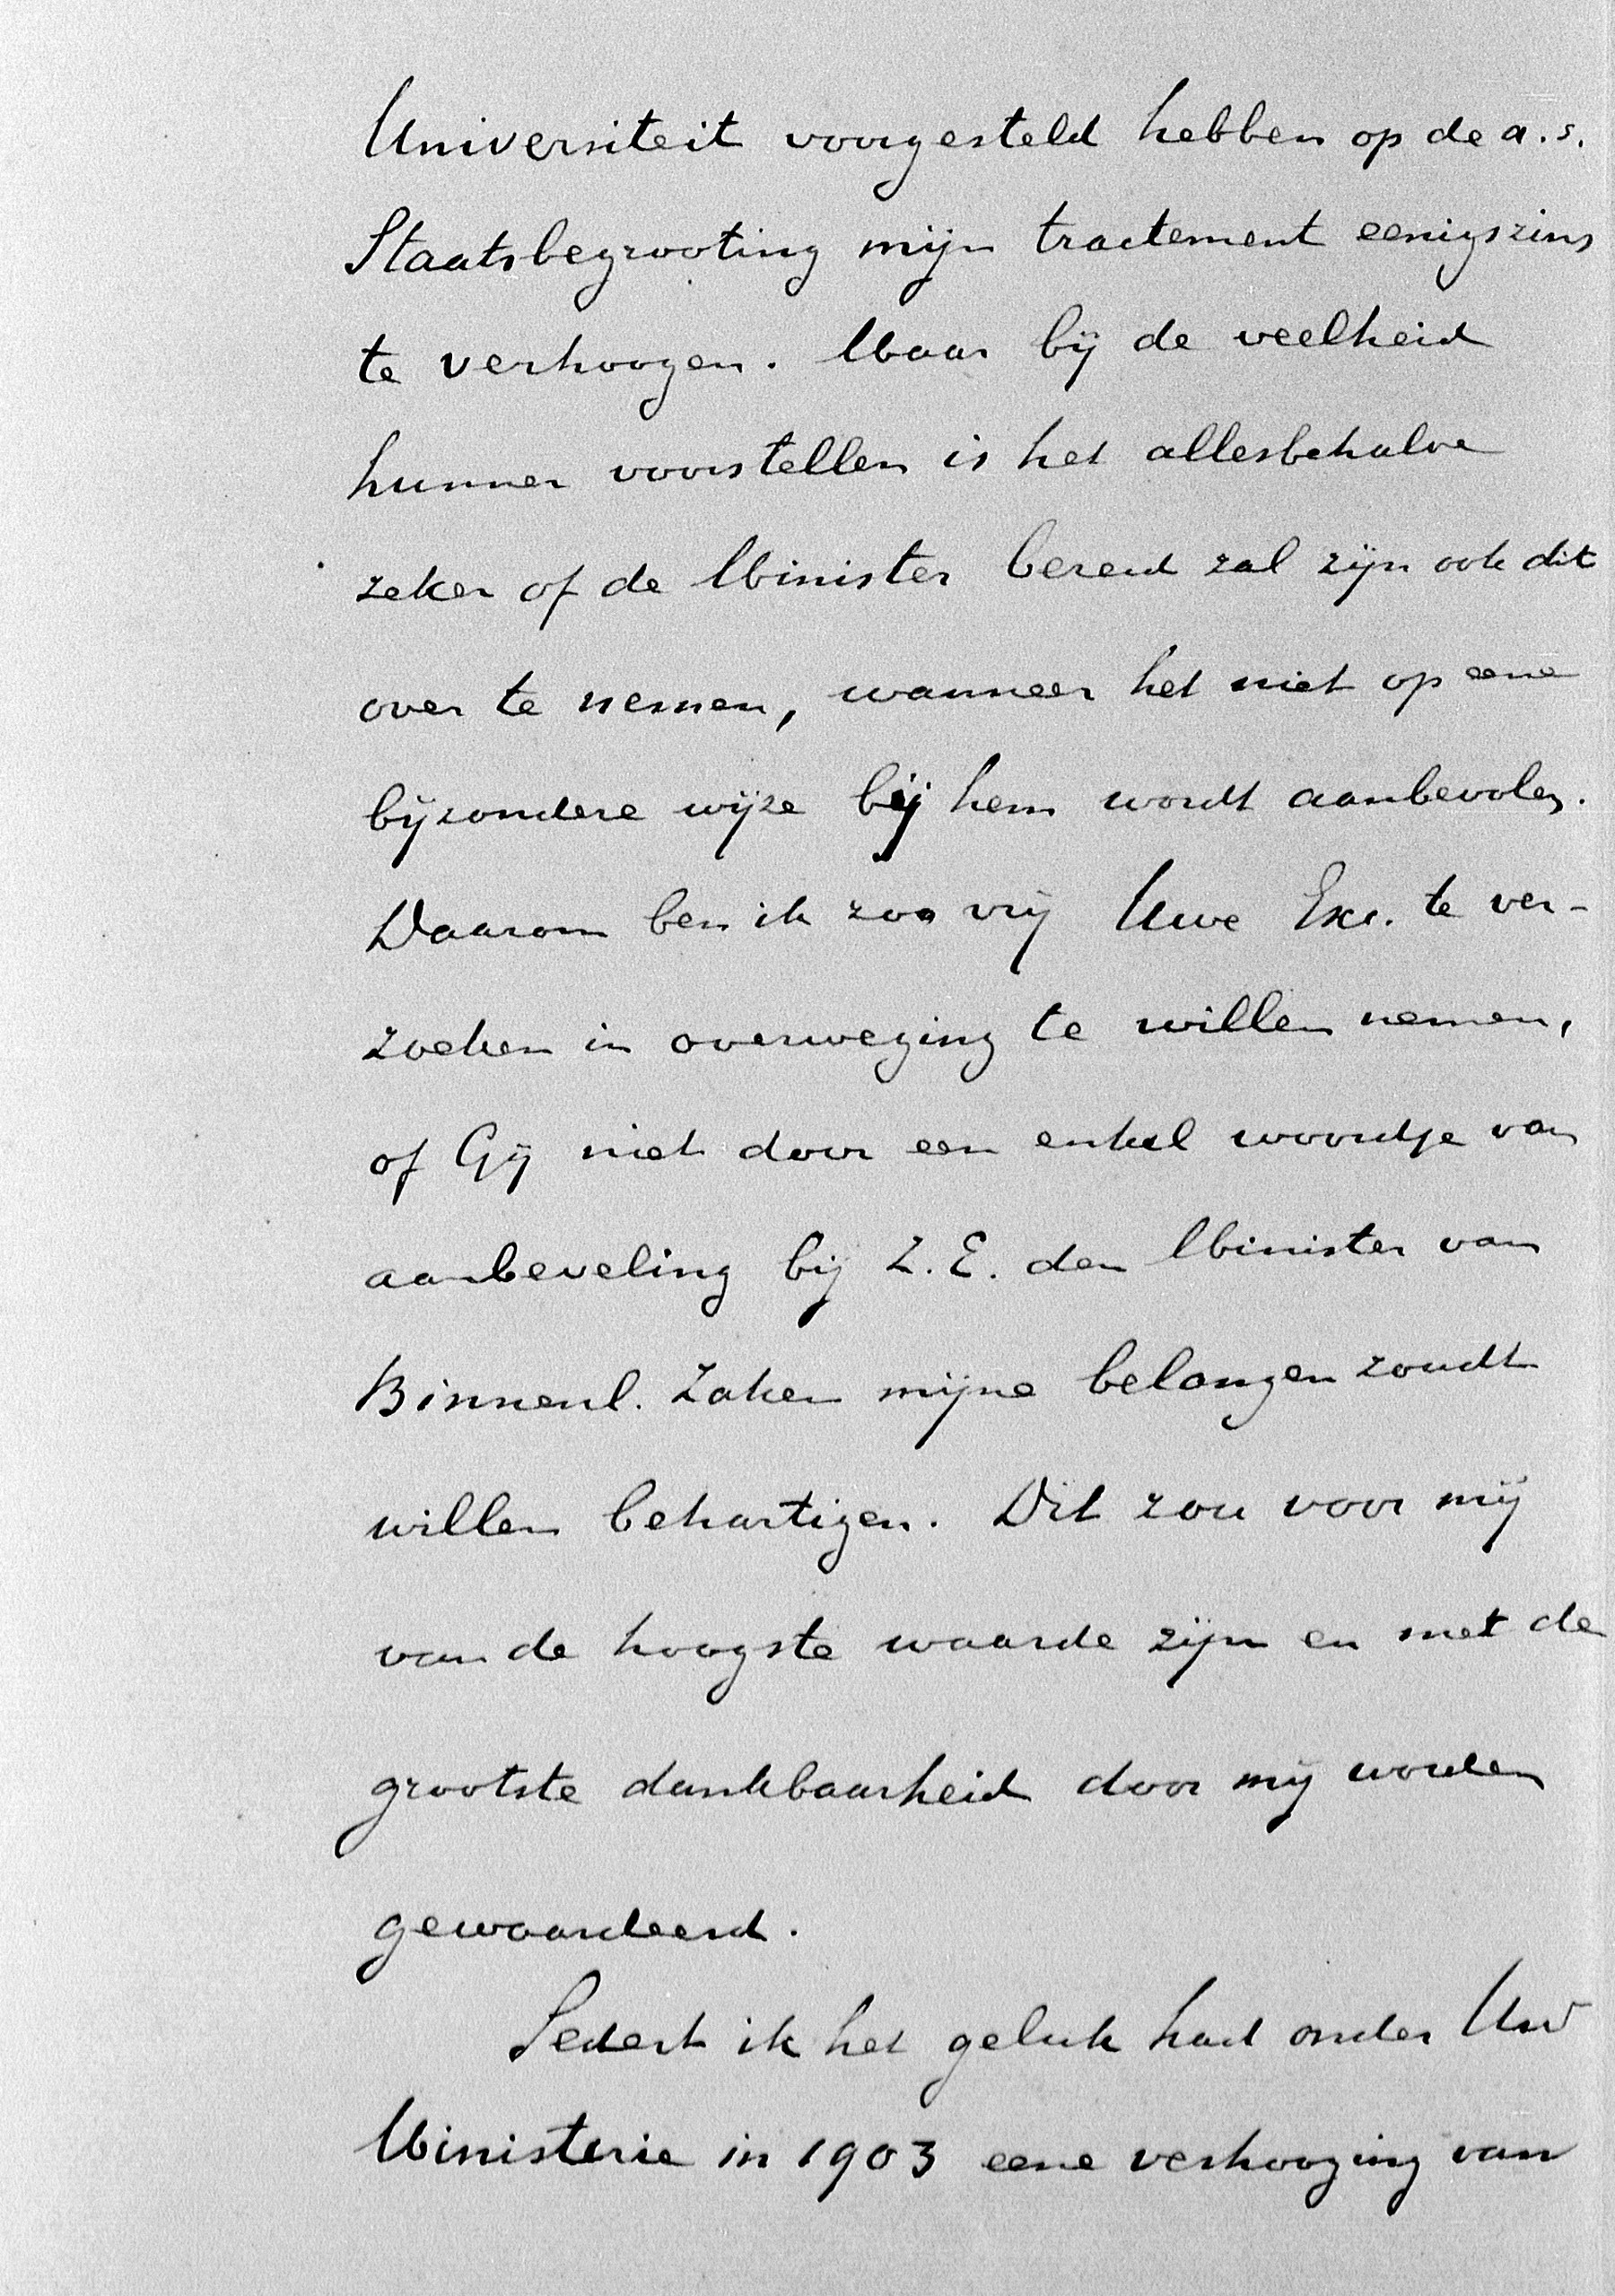 Universiteit voorgesteld hebben op de a.s.
Staatsbegrooting mijn tractement eenigszins
te verhoogen. Maar bij de veelheid
hunner voorstellen is het allesbehalve
zeker of de Minister bereid zal zijn ook dit
over te nemen, wanneer het niet op eene
bijzondere wijze bij hem wordt aanbevolen.
Daarom ben ik zoo vrij Uwe Exc. te ver-
zoeken in overweging te willen nemen,
of Gij niet door een enkel woordje van
aanbeveling bij Z.E. den Minister van
Binnenl. Zaken mijne belangen zoudt
willen behartigen. Dit zou voor mij
van de hoogste waarde zijn en met de
grootste dankbaarheid door mij worden
gewaardeerd.
Sedert ik het geluk had onder Uw
Ministerie in 1903 eene verhooging van